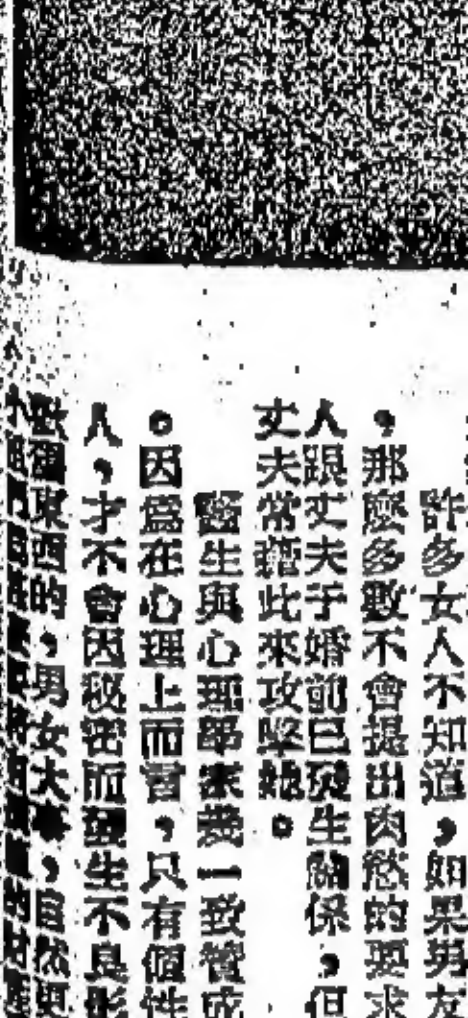 許多女人不知道，如果男友
，那麼多數不會提出肉慾的要求
人跟丈夫于婚前已發生關係，但
丈夫常藉此來攻擊她。
醫生與心理學家幾一致贊成
。因為在心理上而言，只有個性
人，才不會因秘密而發生不良影
東西的，男女大事，自然更